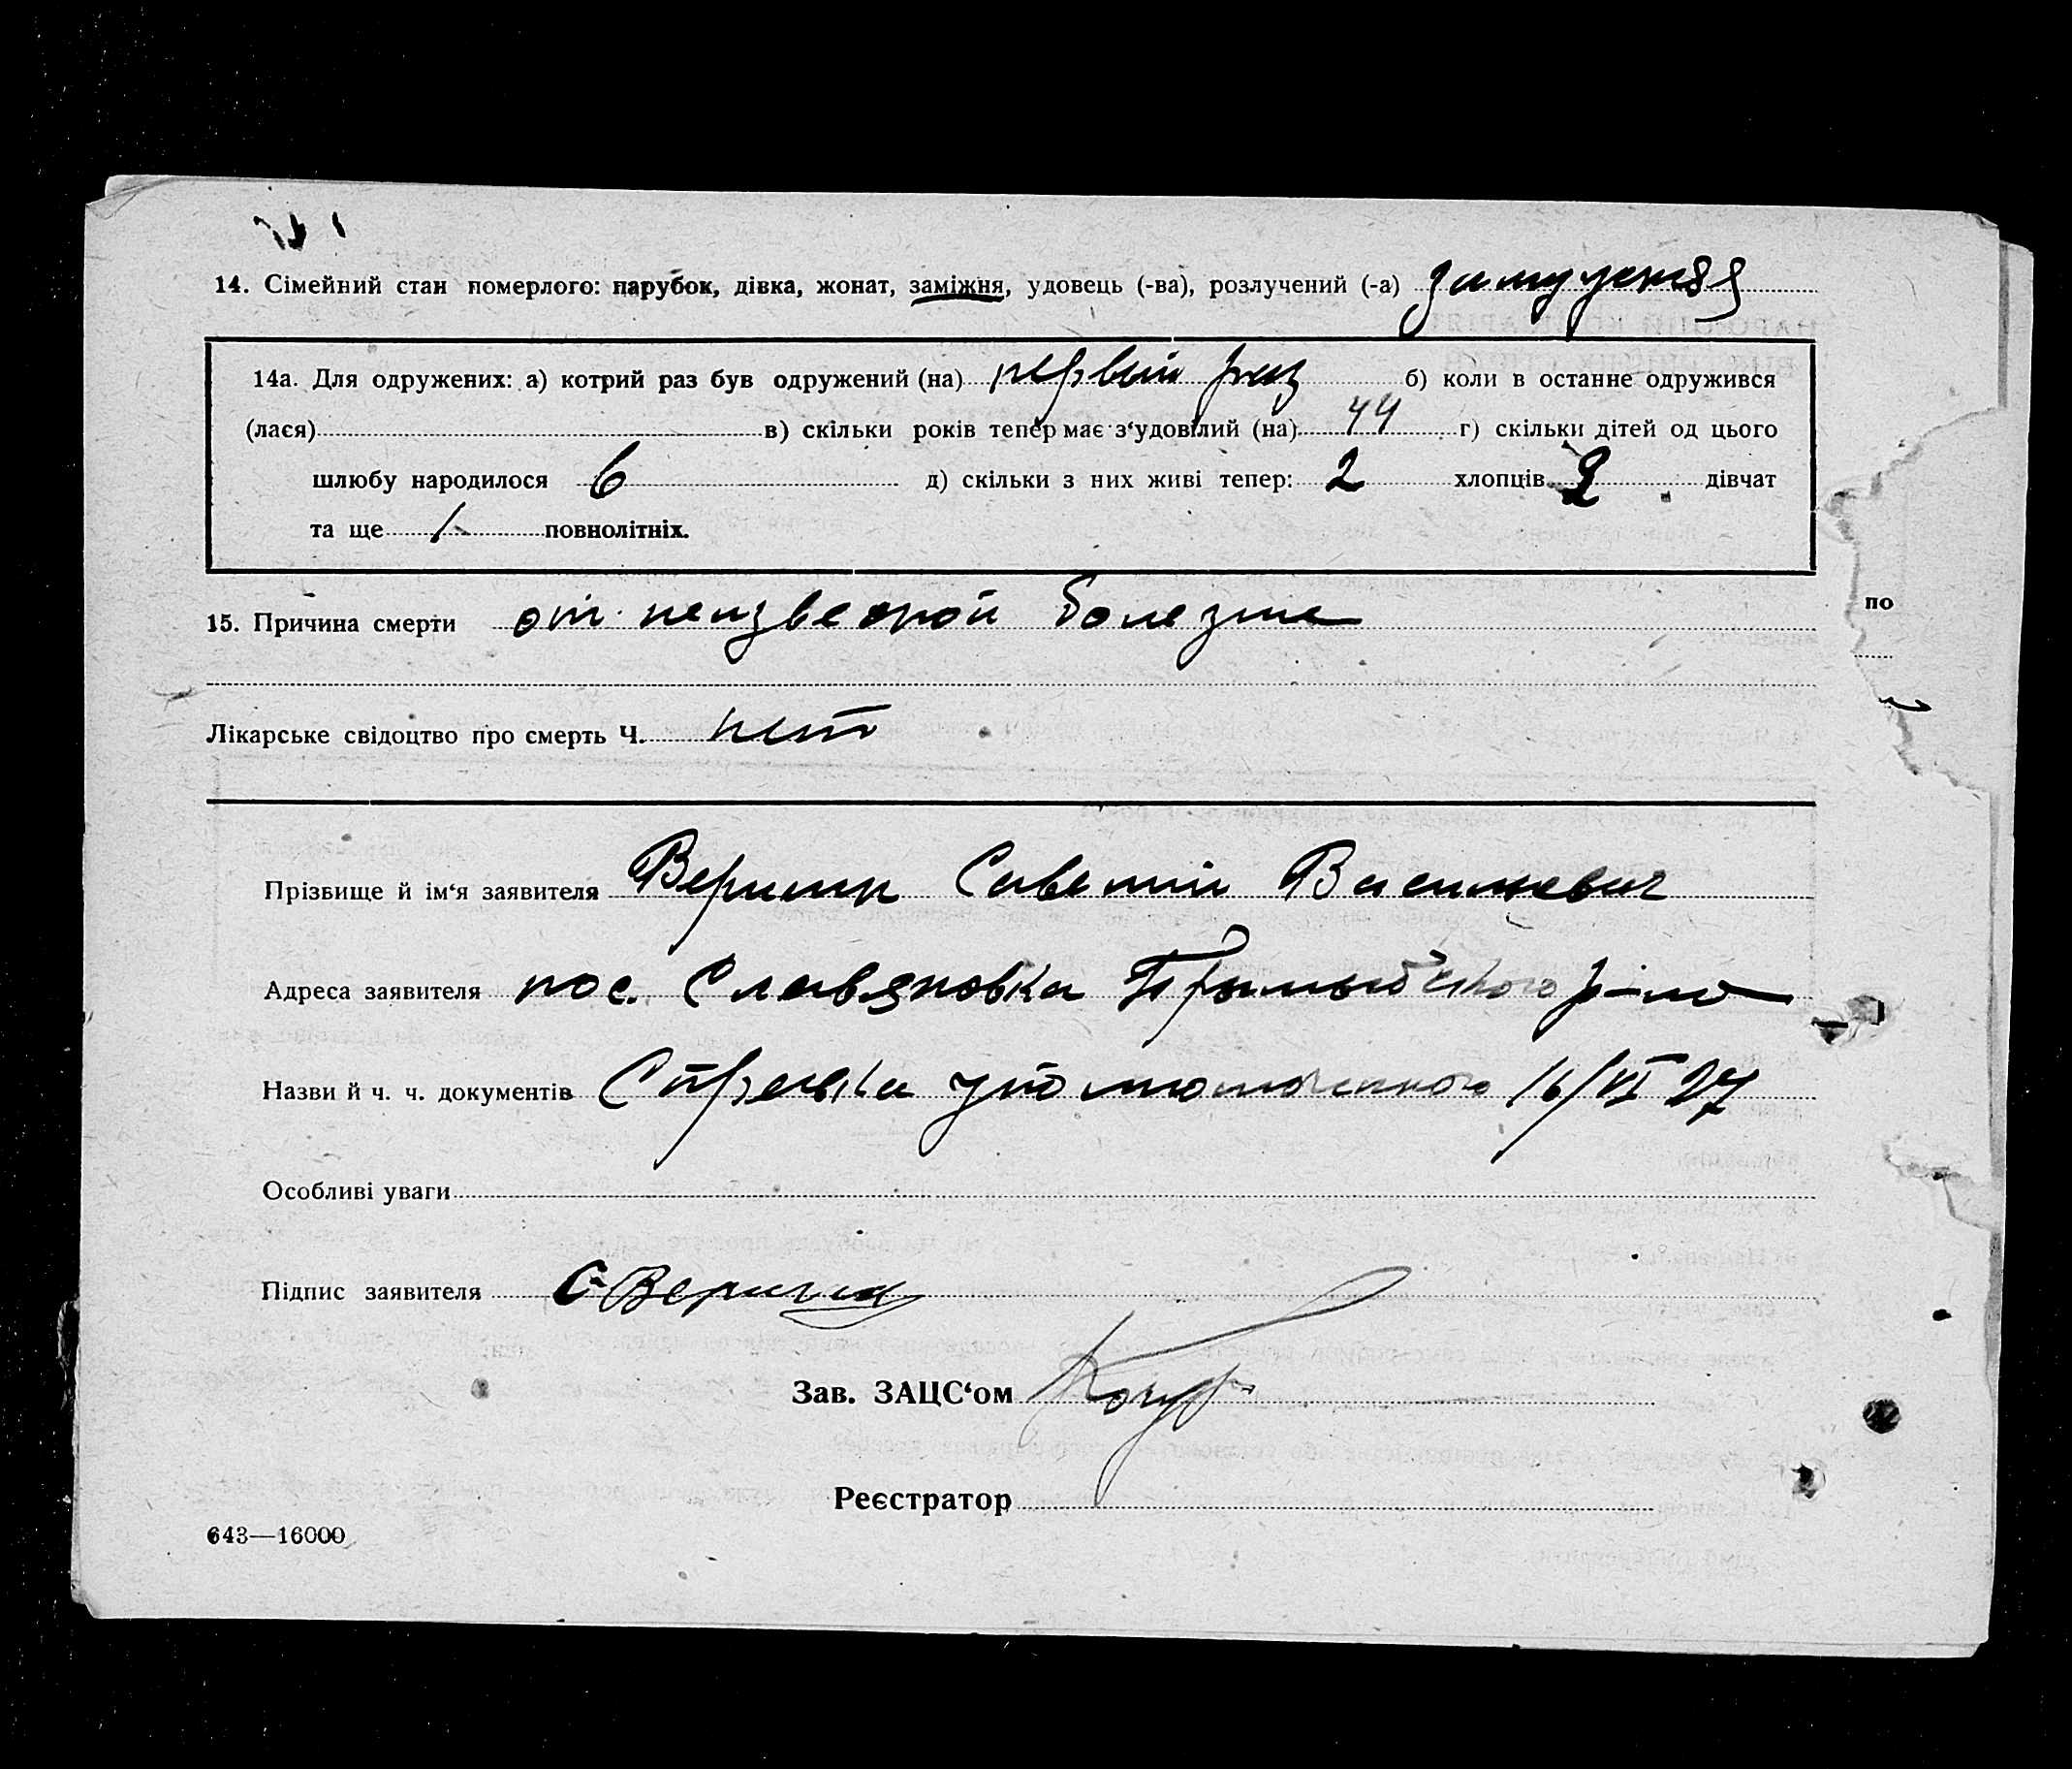 14. Сімейний стан померлого: парубок, дівка, жонат, заміжня, удовець (-ва), розлучений (-а) замужняя
14а. Для одружених: а) котрий раз був одружений (на) первый раз б) коли в останнє одружився
(лася) в) скільки років тепер має з‘удовілий (на) 44 г) скільки дітей од цього
шлюбу народилося 6 д) скільки з них живі тепер: 2 хлопців 2 дівчат
та ще 1 повнолітніх.
15. Причина смерти от неизвестной болезни
по
Лікарське свідоцтво про смерть Ч. нет
Прізвище й ім‘я заявителя Веригин Савелий Васильевич
Адреса заявителя пос. Славяновка р-на
Назви й ч. ч. документів Справка уполномоченного 16/VI 27
Особливі уваги
Підпис заявителя С Веригин
Зав. ЗАЦС‘ом
Реєстратор
643—16000